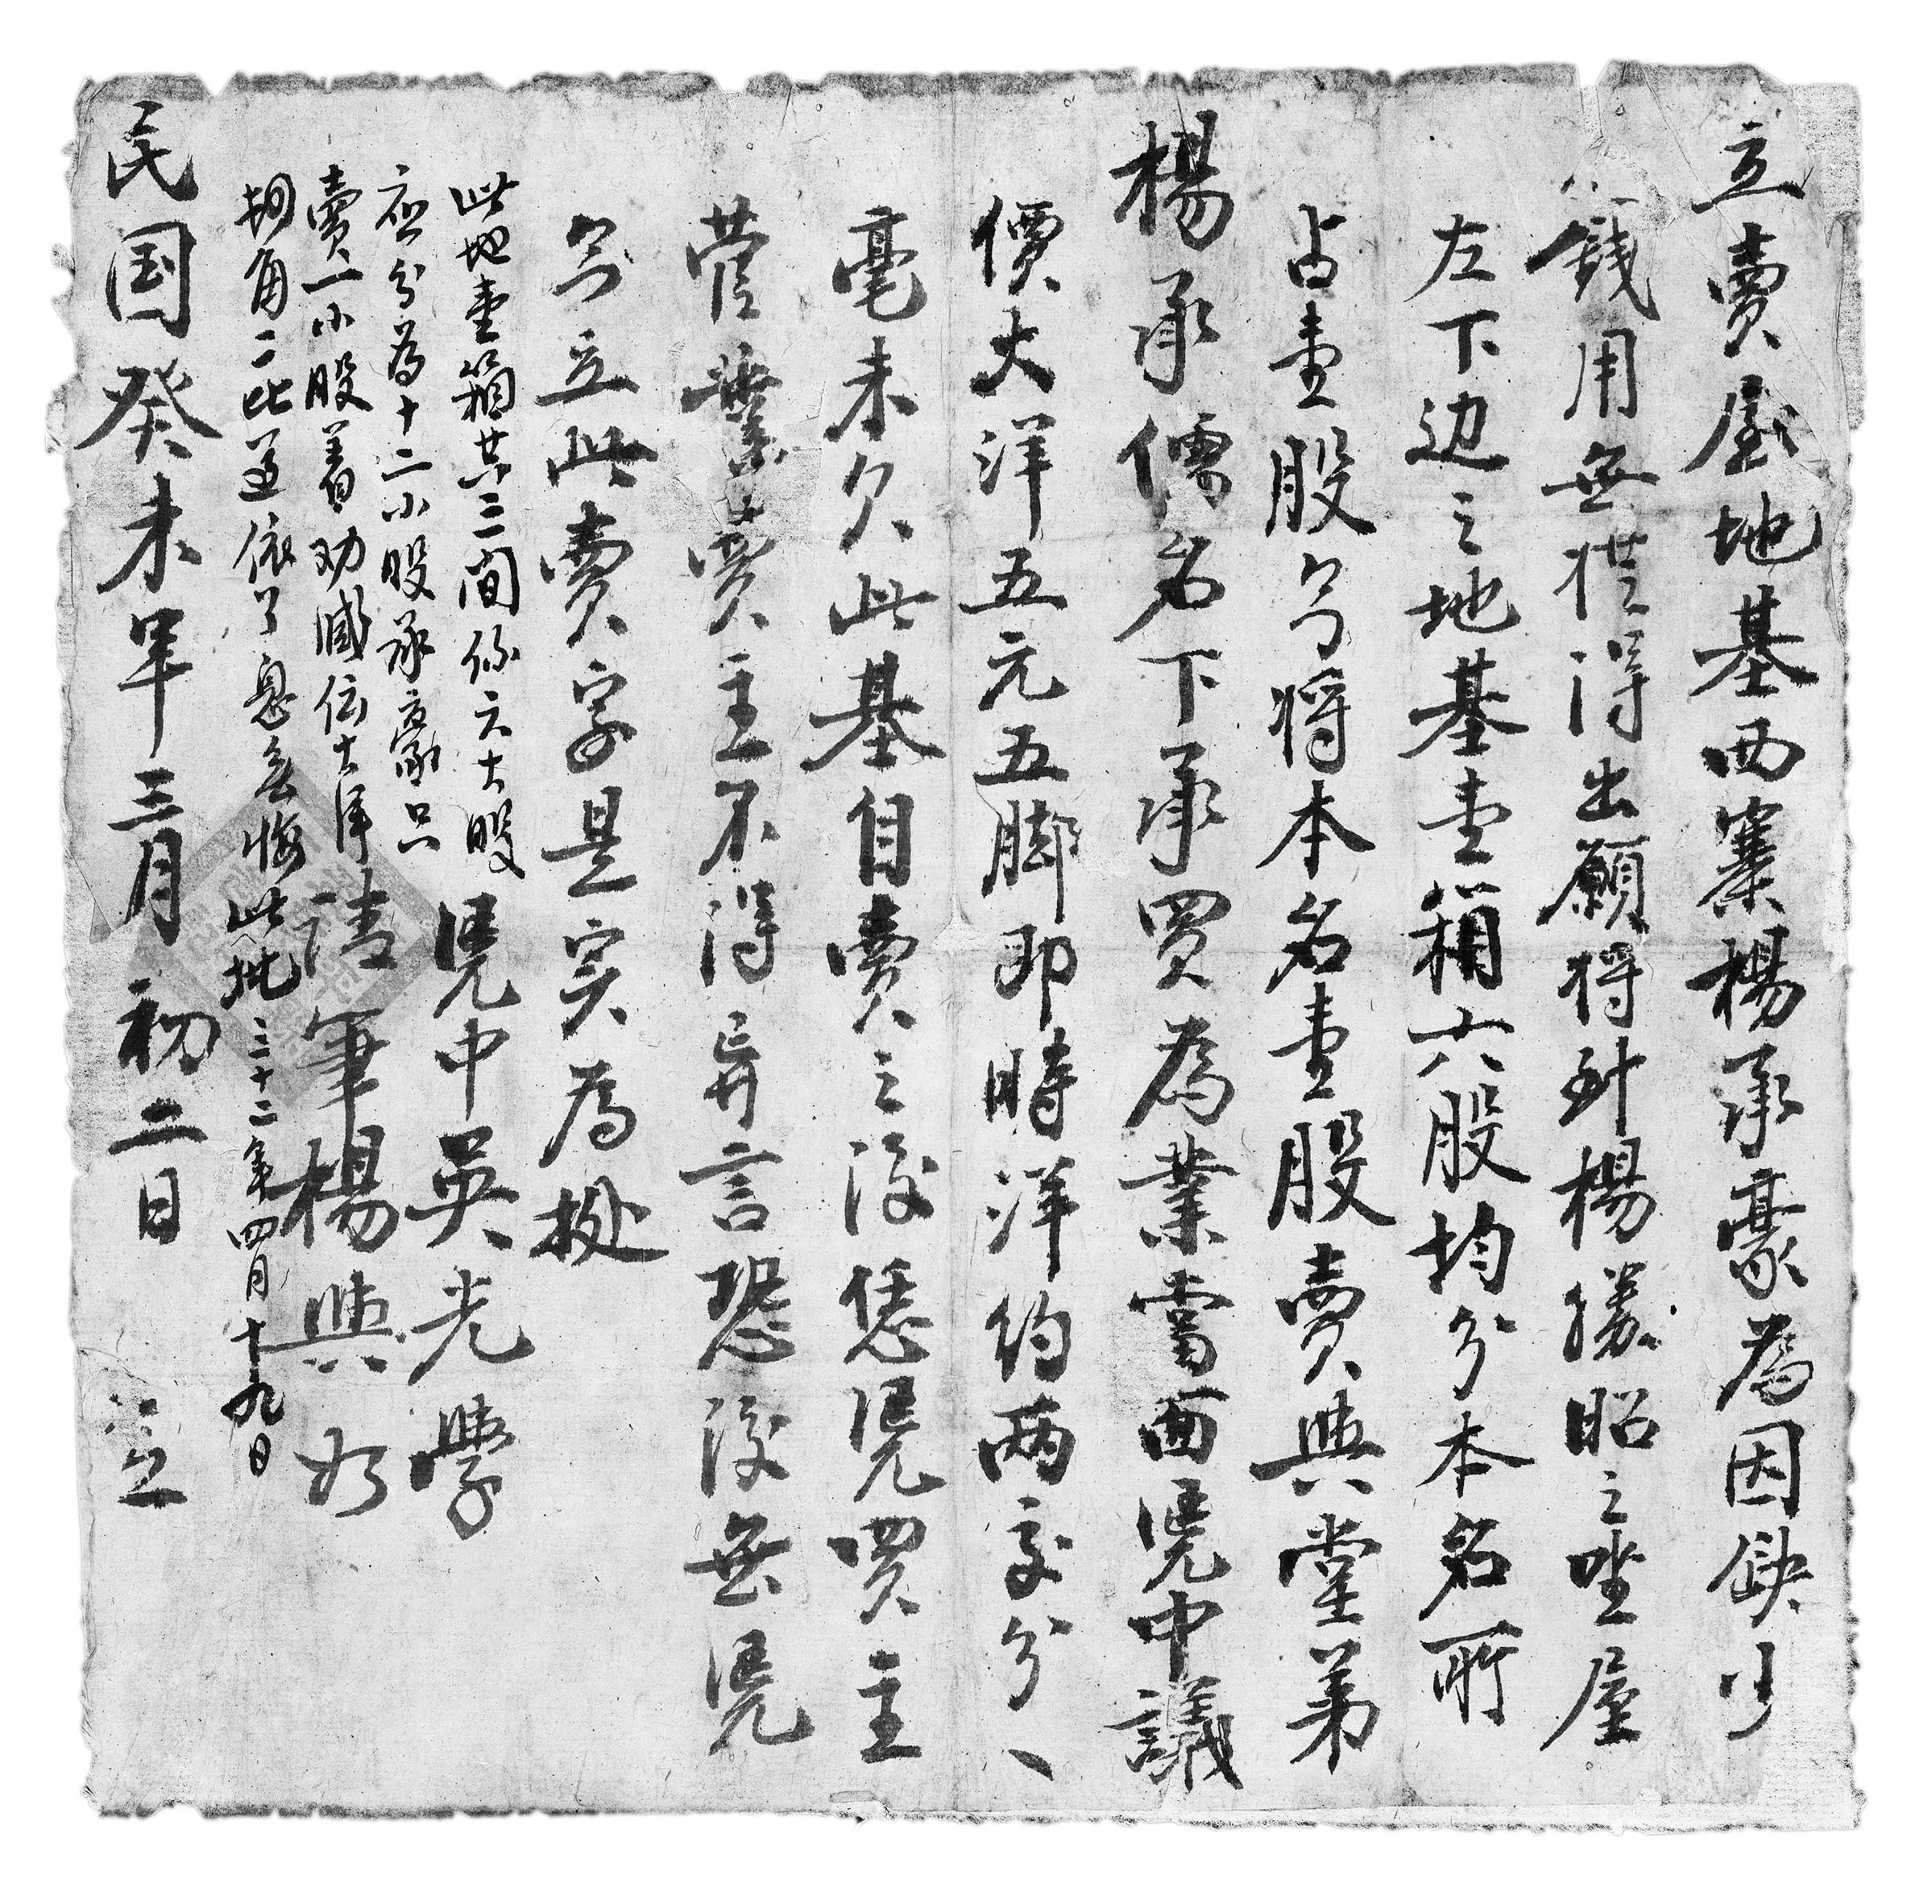 立賣屋地基西寨楊承豪為因缺少
錢用無從得出願將到楊勝昭之坐屋
左下边之地基壹箱六股均分本名所
占壹股今将本名壹股賣與堂弟
楊承儒名下承買為業當面凴中議
價大洋五元五脚即時洋約两交分
毫未欠此基自賣之後恁凴買主
菅業賣主不得异言恐後無凴
今立此賣字是实為挺
凴中吴光學
請筆楊興
此地壹箱共三間係六大股
应分為十二小股承豪只
賣一小股着劝减伝大洋
角二比遵依了息无悔此批三十二年四月十九日
民国癸未年三月初二日 立